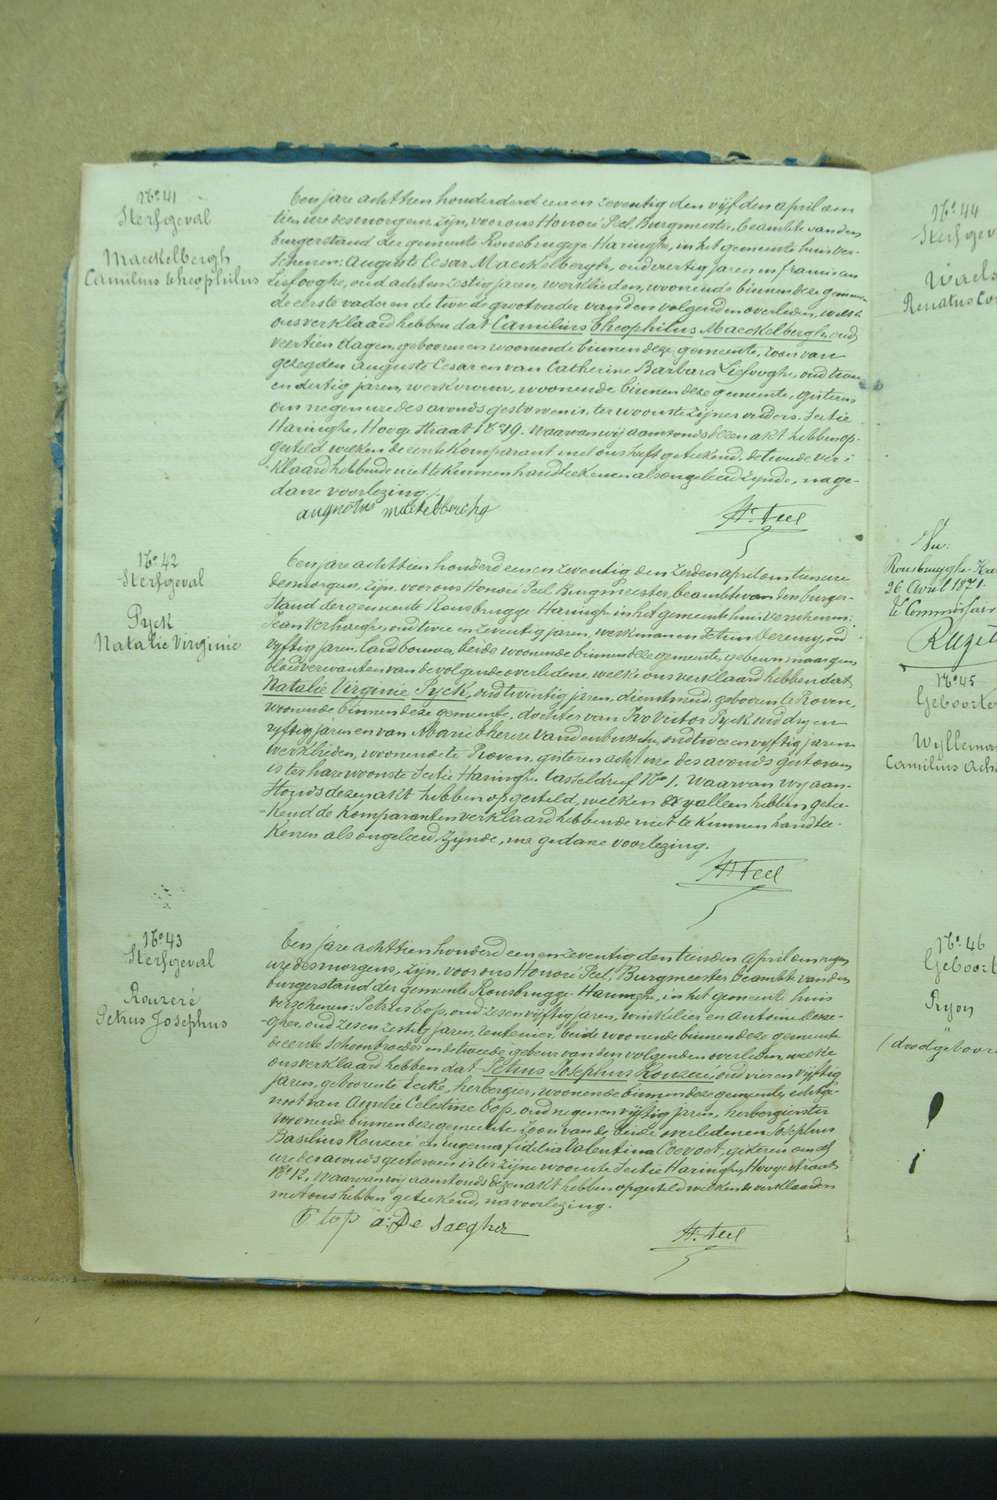 No. 41
Sterfgeval
Maeckelbergh
Camilius Theophilus
Een jare achttien honderderd eenen zeventig den vijfden april om
tien ure des morgens, zijn, voor ons Honoré Feel, Burgmeester, beambte van den
burgerstand der gemeente Rousbrugge Haringhe, in het gemeente huis ver-
schenen: Auguste Cesar Maeckelbergh, oud veertig jaren en Franciscus
Lisfooghe, oud achtenzestig jaren, werklieden, woonende binnen deze gemeente
de eerste vader en de tweede grootvader van den volgenden overleden, welke
ons verklaard hebben dat Camilius Theophilus Maeckelbergh, oud
veertien dagen, geboren en woonende binnen deze gemeente, zoon van
gezegden Auguste Cesar en van Catherine Barbara Lisfooghe, oud
en dertig jaren, werkvrouw, woonende binnen deze gemeente, gisteren
om negen ure des avonds gestorven is, ter woonste zijner ouders. Sectie
Haringhe, Hooge Straat No. 79. Waarvan wij aanstonds dezen akt hebben op-
gesteld welken de eerste komparant met ons heeft geteekend, de tweede ver-
klaard hebbende niet te kunnen handteekenen als ongeleerd zijnde, na ge-
dane voorlezing.
augustus maekelberghe
H. Feel
No. 42
Sterfgeval
Pyck
Natalie Virginie
Een jare achttien honderd eenen zeventig den zesden april om tien ure
des morgens, zijn, voor ons Honoré Feel, Burgmeester, beambte van den burger-
stand der gemeente Rousbrugge Haringhe in het gemeente huis verschenen:
Jean Verhaeghe, oud twee en zeventig jaren, werkman en Deruy, oud
vyftig jaren, landbouwer, beide woonende binnen deze gemeente, gebeurs maar geen
bloedverwanten van de volgende overledene, welke ons verklaard hebben dat
Natalie Virginie Pyck, oud twintig jaren, dienstmeid, geboren te Roven,
woonende binnen deze gemeente, dochter van Ivo Victor Pyck oud dry en
vyftig jaren en van Marie Therese Vandenbussche, oud twee en vyftig jaren
werklieden, woonende te Proven, gisteren acht ure des avonds gestorven
is ter hare woonste Sectie Haringhe, Casteldreef No. 1. Waarvan wy aan-
stonds dezen akt hebben opgesteld, welken wy alleen hebben getee-
kend de komparanten verklaard hebbende niet te kunnen handtee-
kenen als ongeleerd zijnde, na gedane voorlezing.
H. Feel
No. 43
Sterfgeval
Rouzeré
Petrus Josephus
Een jare achttien honderd eenen zeventig den tienden april om negen
ure des morgens, zijn, voor ons Honoré Feel, Burgmeester beambte van den
burgerstand der gemeente Rousbrugge Haringhe, in het gemeente huis
verschenen: Petrus Top, oud zes en vyftig jaren, winkelier en Antoine Desae-
gher, oud zes en zestig jaren, rentenier, beide woonende binnen deze gemeente
de eerste schoonbroeder en de tweede gebeur van den volgenden overleden, welke
ons verklaard hebben dat Petrus Josephus Rouzeré, oud vier en vyftig
jaren, geboren te Eecke, herbergier, woonende binnen deze gemeente, echtge-
noot van Amelie Celestine Top, oud negen en vyftig jaren, herbergierster
woonende binnen deze gemeente zoon van de beide overledenen Josephus
Basilius Rouzeré en Eugenia Fidelia Valentina Coevoet, gisteren om
ure des avonds gestorven is ter zijne woonste Sectie Haringhe, Hoogestraat
No. 12. Waarvan wij aanstonds dezen akt hebben opgesteld welken de verklaarders
met ons hebben geteekend, na voorlezing.
P Top
a. De Saegher
H. Feel
No. 44
Sterfgev
Waels
Renatus Co
Vu:
Rousbrugghe-Ha
26 Avril 1871.
Le Commissair
No. 45
Geboorte
Wylleman
Camilius Ach
No. 46
Geboort
Pyon
(doodgeboore